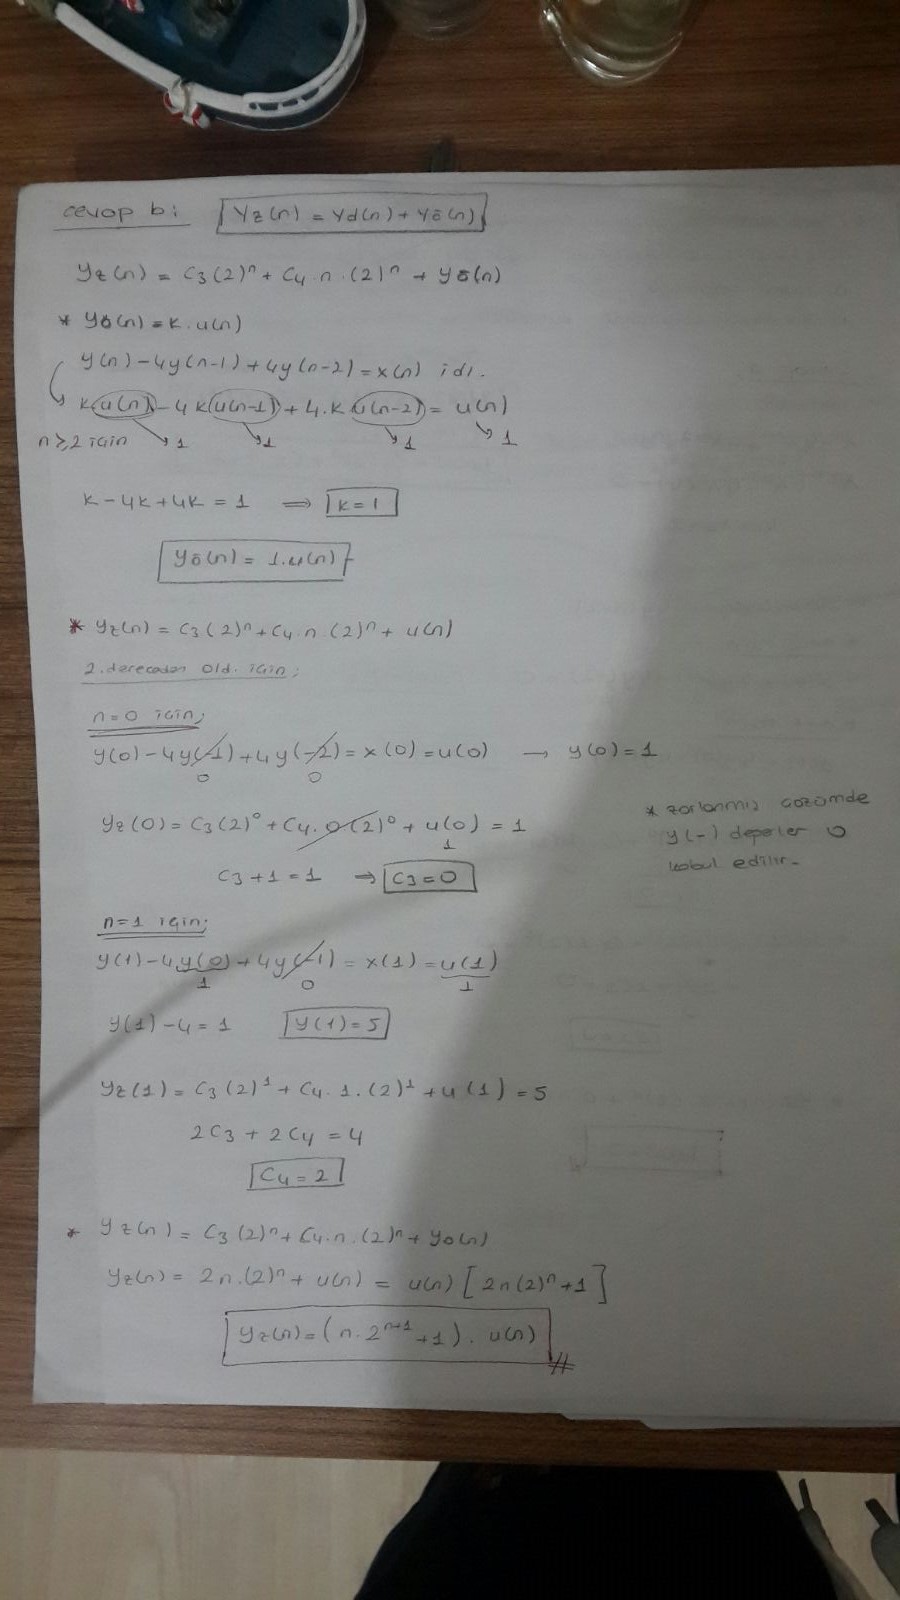 cevap b: Yz(n) = Yd(n) + Yö(n)
Yz(n) = C3(2)^n + C4.n.(2)^n + Yö(n)
* Yö(n) = k.u(n)
y(n) - 4y(n-1) + 4y(n-2) = x(n) idi.
k.u(n) - 4k u(n-1) + 4.k u(n-2) = u(n)
n≥2 için 1 1 1 1
k - 4k + 4k = 1 ⟹ k=1
Yö(n) = 1.u(n)
* Yz(n) = C3(2)^n + C4.n.(2)^n + u(n)
2.dereceden old. için;
n=0 için;
y(0) - 4y(-1) + 4y(-2) = x(0) = u(0) → y(0) = 1
0 0
* zorlanmış çözümde
y(-) değerler 0
kabul edilir.
Yz(0) = C3(2)^0 + C4.0(2)^0 + u(0) = 1
1
C3 + 1 = 1 ⇒ C3=0
n=1 için;
y(1) - 4y(0) + 4y(-1) = x(1) = u(1)
1 0 1
y(1) - 4 = 1 y(1) = 5
Yz(1) = C3(2)^1 + C4.1.(2)^1 + u(1) = 5
2C3 + 2C4 = 4
C4 = 2
* Yz(n) = C3(2)^n + C4.n.(2)^n + Yö(n)
Yz(n) = 2n.(2)^n + u(n) = u(n) [2n(2)^n + 1]
Yz(n) = (n.2^n+1 + 1). u(n)